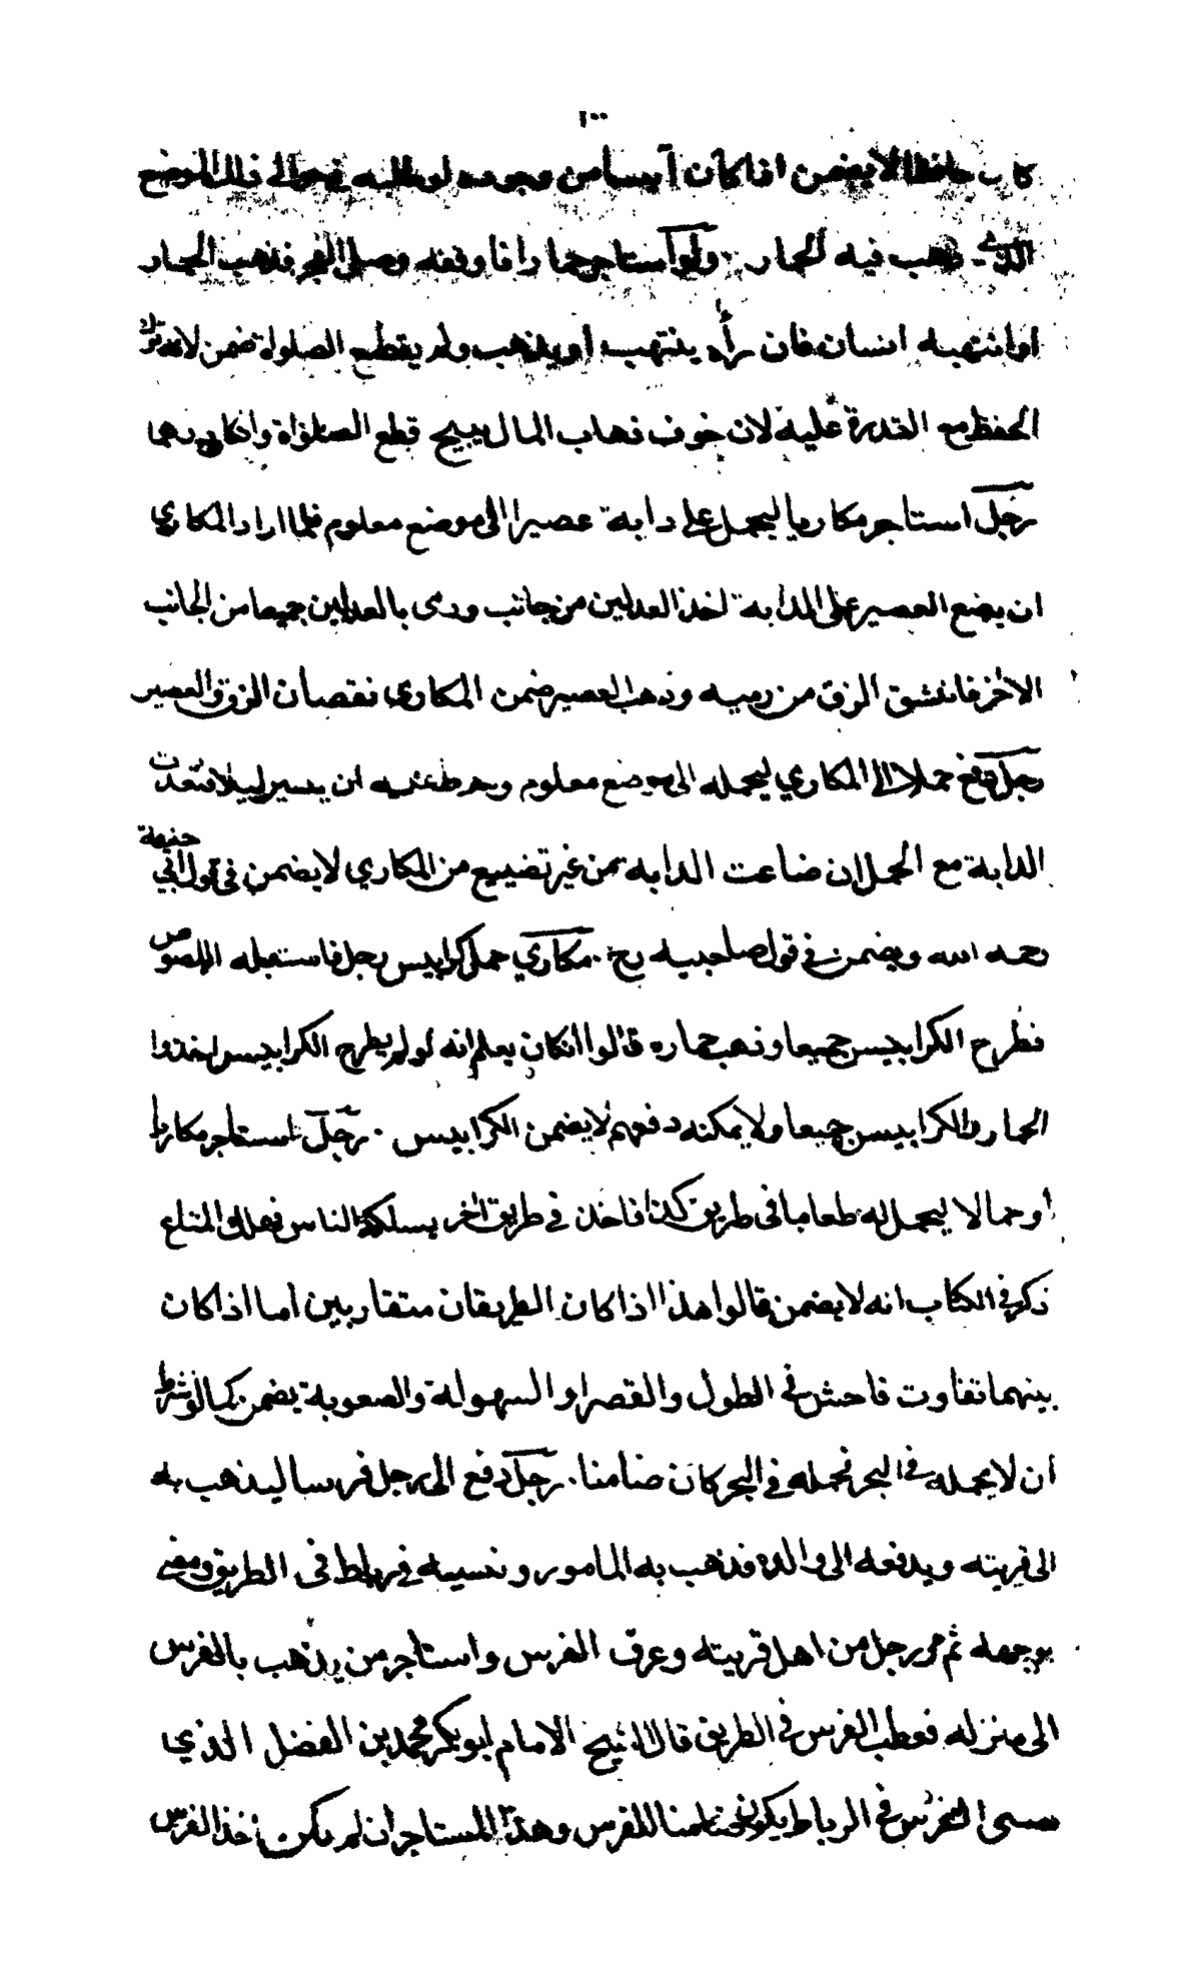 ١٠٠
كان حافظا لا يضمن اذا كان آيسا من وجوده لو طلبه في حوالي ذلك الموضع
الذي ذهب فيه الحمار ولو استاجر حمارا فاوقفه وصلى الفجر فذهب الحمار
او انتهبه انسان فان رأه ينتهب او يذهب ولم يقطع الصلوة ضمن لانه ترك
الحفظ مع القدرة عليه لان خوف ذهاب المال يبيح قطع الصلوة وان كان درهما
رجل استاجر مكاريا ليحمل على دابة عصيرا الى موضع معلوم فلما اراد المكاري
ان يضع العصير على الدابة اخذ العدلين من جانب ورمى بالعدلين جميعا من الجانب
الاخر فانشق الزق من رميه وذهب العصير ضمن المكاري نقصان الزق والعصير
رجل دفع حملا الى المكاري ليحمله الى موضع معلوم وشرط عليه ان يسير ليلا فتعدت
الدابة مع الحمل ان ضاعت الدابة من غير تضييع من المكاري لا يضمن في قول ابي حنيفة
رحمه الله ويضمن في قول صاحبيه رح . مكاري حمل كرابيس رجل فاستقبله اللصوص
فطرح الكرابيس جميعا وذهب حماره قالوا ان كان يعلم انه لو لم يطرح الكرابيس اخذوا
الحمار والكرابيس جميعا ولا يمكنه دفعهم لا يضمن الكرابيس . رجل استاجر مكاريا
او حمالا ليحمل له طعاما في طريق كذا فاخذ في طريق اخر يسلكه الناس فهلك المتاع
ذكر في الكتاب انه لا يضمن قالوا هذا اذا كان الطريقان متقاربين اما اذا كان
بينهما تفاوت فاحش في الطول والقصر او السهولة والصعوبة يضمن كما لو شرط
ان لا يحمله في البحر فحمله في البحر كان ضامنا . رجل دفع الى رجل فرسا ليذهب به
الى قريته ويدفعه الى والده فذهب به المامور ونسيه في رباط في الطريق ومضى
بوجهه ثم مر رجل من اهل قريته وعرف الفرس واستاجر من يذهب بالفرس
الى منزله فعطب الفرس في الطريق قال الشيخ الامام ابو بكر محمد بن الفضل الذي
نسى الفرس في الرباط يكون ضامنا للفرس وهذا المستاجر ان لم يكن اخذ الفرس